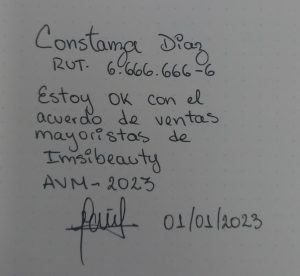 Constanza Diaz
RUT. 6.666.666-6
Estoy OK con el
acuerdo de ventas
mayoristas de
Imsibeauty
AVM-2023
01/01/2023